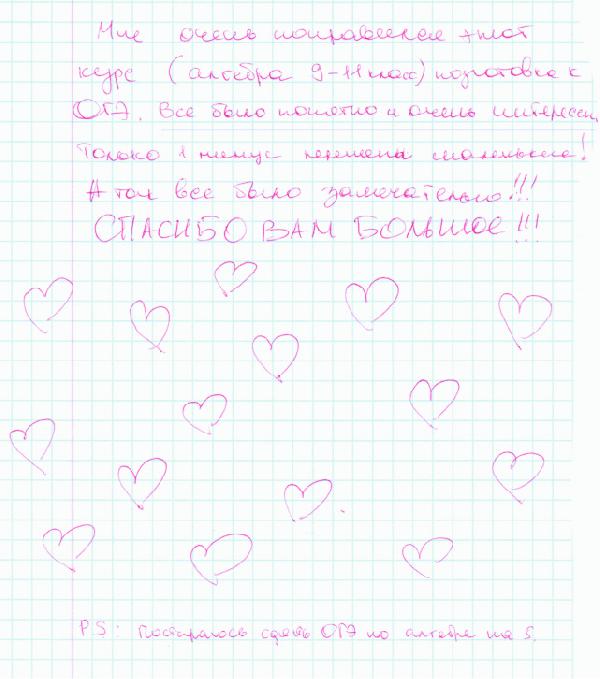 Мне очень понравился этот
курс (алгебра 9-11 класс) подготовка к
ОГЭ. Все было понятно и очень интересн
Только 1 минус перемена маленькие!
А так все было замечательно!!!
СПАСИБО ВАМ БОЛЬШОЕ!!!
P.S: Постараюсь сдать ОГЭ по алгебре на 5.